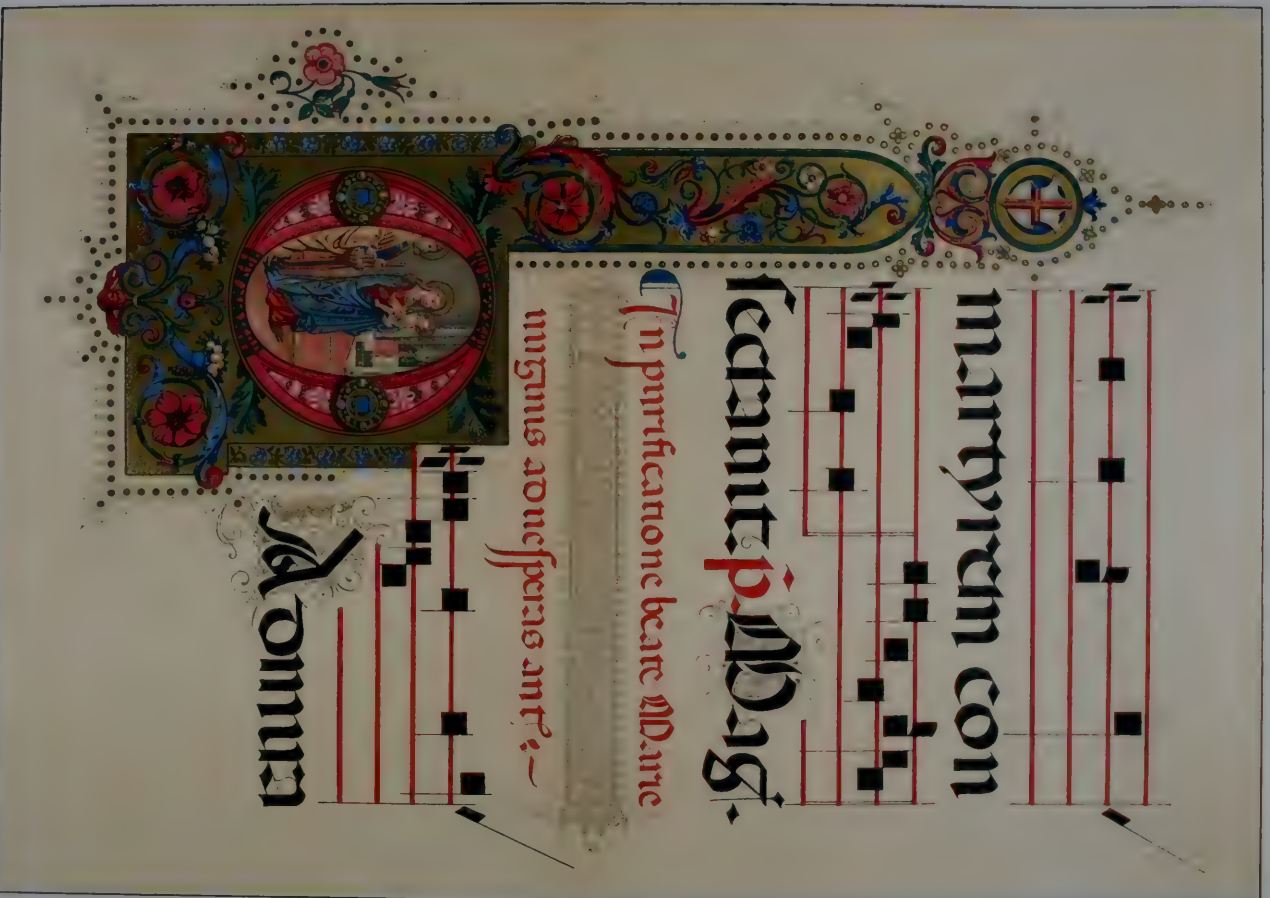 martyrem con
secrauit p̄. Mag.
In purificatione beate Marie
uirginis aduesperas ant̄:~
O Admira